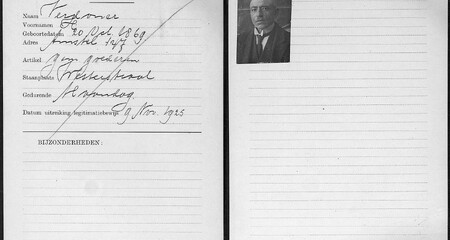 Naam Verdoner
Voornamen S
Geboortedatum 20 Oct. 1869
Adres Amstel 147
Artikel gem. goederen
Staanplaats Westerstraat
Gedurende Maandag
Datum uitreiking legitimatiebewijs 9 Nov. 1925
BIJZONDERHEDEN: